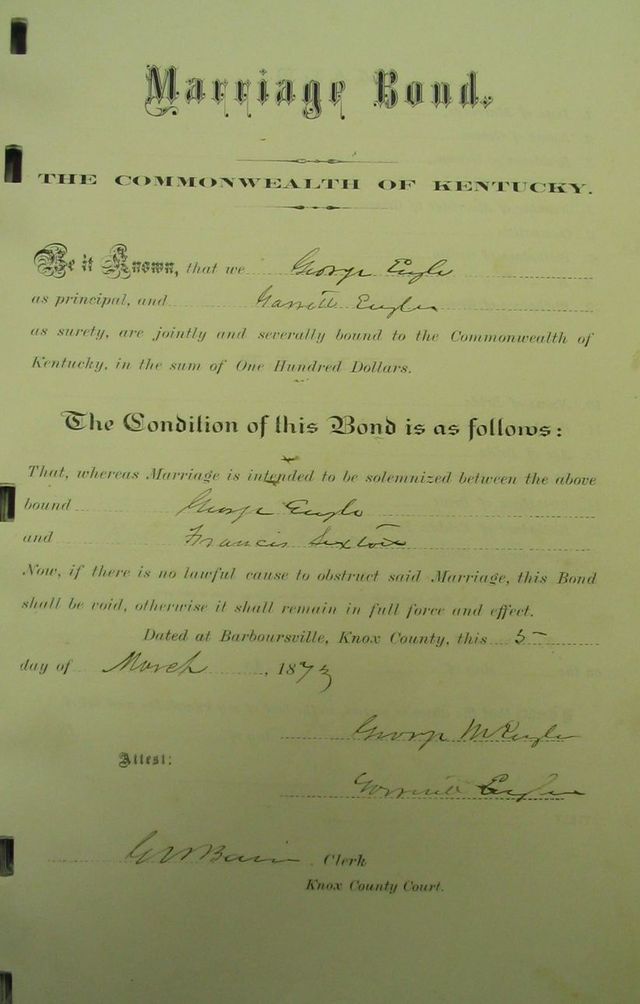 Marriage Bond.
THE COMMONWEALTH OF KENTUCKY.
Be it Known, that we George Engle
as principal, and Garrett Engle
as surety, are jointly and severally bound to the Commonwealth of
Kentucky, in the sum of One Hundred Dollars.
The Condition of this Bond is as follows:
That, whereas Marriage is intended to be solemnized between the above
bound George Engle
and Francis Sexton
Now, if there is no lawful cause to obstruct said Marriage, this Bond
shall be void, otherwise it shall remain in full force and effect.
Dated at Barboursville, Knox County, this 5
day of March, 1873
George M Engle
Attest:
Garrett Engle
Clerk
Knox County Court.